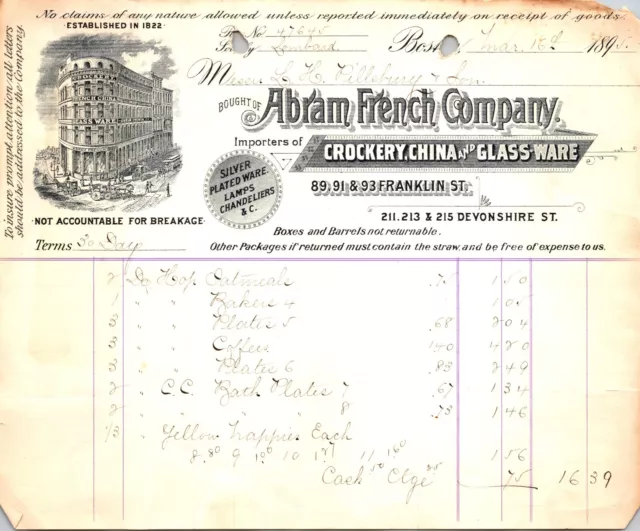 No claims of any nature allowed unless reported immediately on receipt of goods.
ESTABLISHED IN 1822
To insure prompt attention all letters
should be addressed to the Company.
No 47645
Lombard
Bost Mar. 189
Messrs L. H. Pillsbury & Son
BOUGHT OF
Abram French Company.
Importers of
CROCKERY, CHINA AND GLASS WARE
SILVER
PLATED WARE.
LAMPS
CHANDELIERS
& C.
89, 91 & 93 FRANKLIN ST.
211. 213 & 215 DEVONSHIRE ST.
CROCKERY
NOT ACCOUNTABLE FOR BREAKAGE
Boxes and Barrels not returnable.
Terms 30 Day
Other Packages if returned must contain the straw, and be free of expense to us.
2 Dz Oatmeals .75 1 50
1 " " Bakers 4 1 05
3 " " Plates 5 .68 2 04
3 " " Coffees 1 40 4 20
3 " " Plates 6 .83 2 49
2 " C.C. Bath Plates 7 .67 1 34
2 " " " 8 .73 1 46
1/3 " Yellow Each
8 .80 9 1 00 10 11 1 60 1 56
Cask 50 Ctge 25 75 16 39